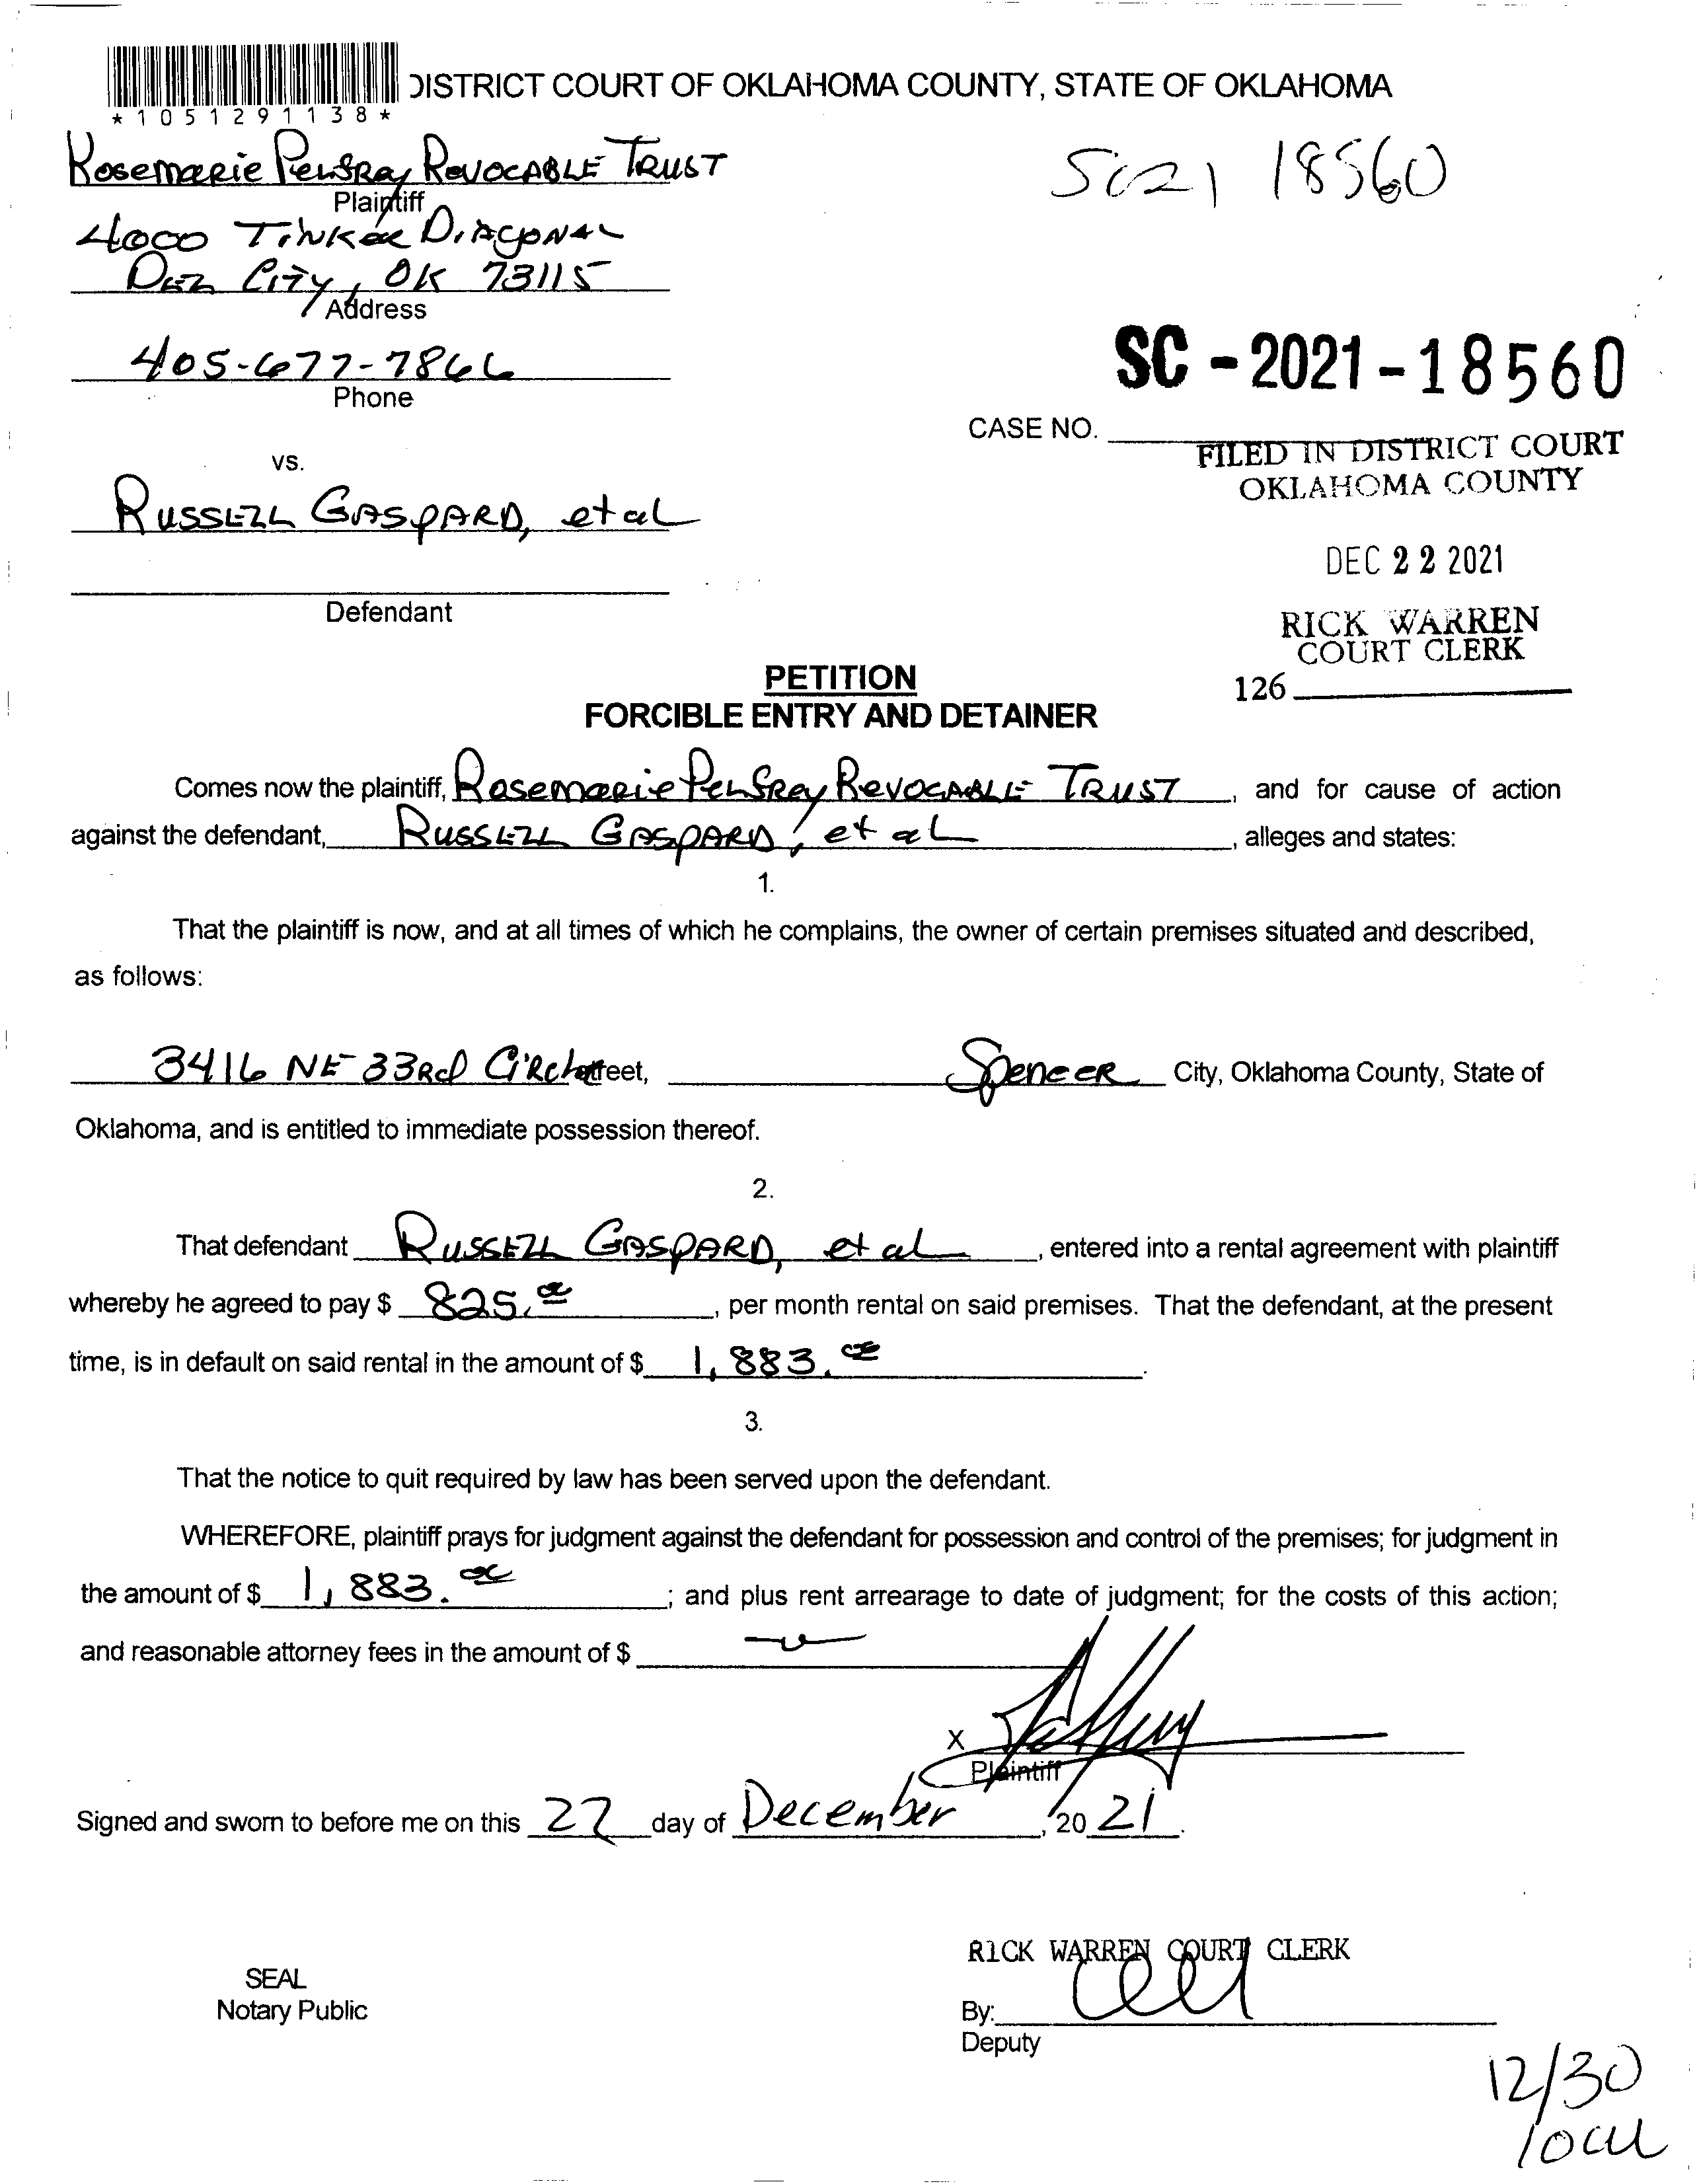 DISTRICT COURT OF OKLAHOMA COUNTY, STATE OF OKLAHOMA
*1051291138*
Rosemarie Pelfrey Revocable Trust
Plaintiff
SC21 18560
4000 Tinker Diagonal
Del City, OK 73115
Address
405-677-7866
Phone
SC-2021-18560
CASE NO.
FILED IN DISTRICT COURT
OKLAHOMA COUNTY
vs.
Russell Gaspard, et al
DEC 22 2021
Defendant
RICK WARREN
COURT CLERK
126
PETITION
FORCIBLE ENTRY AND DETAINER
Comes now the plaintiff, Rosemarie Pelfrey Revocable Trust, and for cause of action
against the defendant, Russell Gaspard, et al, alleges and states:
1.
That the plaintiff is now, and at all times of which he complains, the owner of certain premises situated and described,
as follows:
3416 NE 33rd Circle Street, Spencer City, Oklahoma County, State of
Oklahoma, and is entitled to immediate possession thereof.
2.
That defendant Russell Gaspard, et al, entered into a rental agreement with plaintiff
whereby he agreed to pay $ 825.00, per month rental on said premises. That the defendant, at the present
time, is in default on said rental in the amount of $ 1,883.00.
3.
That the notice to quit required by law has been served upon the defendant.
WHEREFORE, plaintiff prays for judgment against the defendant for possession and control of the premises; for judgment in
the amount of $ 1,883.00; and plus rent arrearage to date of judgment; for the costs of this action;
and reasonable attorney fees in the amount of $
X
Plaintiff
Signed and sworn to before me on this 22 day of December, 20 21.
RICK WARREN COURT CLERK
SEAL
Notary Public
By:
Deputy
12/30